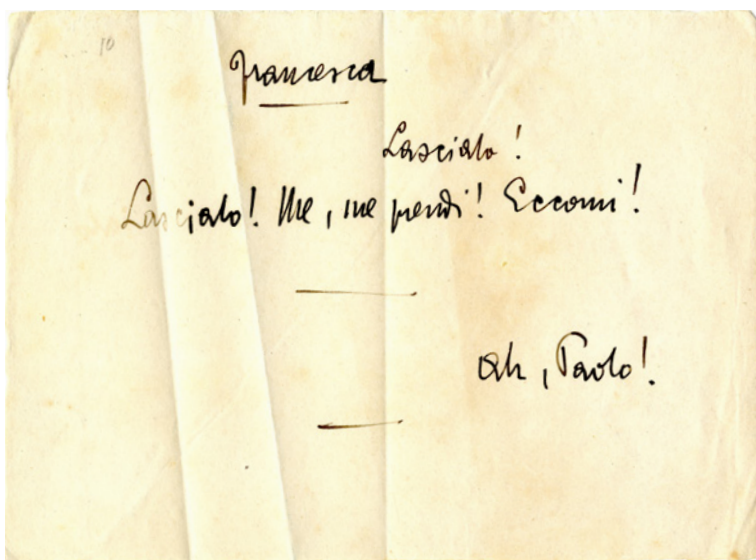 10
Francesca
Lasciato!
Lasciato! Me, me prendi! Eccomi!
Ah, Paolo!